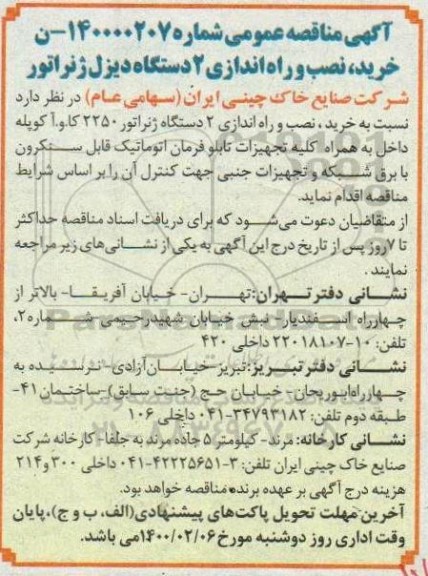 آگهی مناقصه عمومی شماره ۱۴۰۰۰۰۲۰۷-ن
خرید، نصب و راه اندازی ۲ دستگاه دیزل ژنراتور
شرکت صنایع خاک چینی ایران (سهامی عام) در نظر دارد
نسبت به خرید، نصب و راه اندازی ۲ دستگاه ژنراتور ۲۲۵۰ کا.و.آ کوپله
داخل به همراه کلیه تجهیزات تابلو فرمان اتوماتیک قابل سنکرون
با برق شبکه و تجهیزات جنبی جهت کنترل آن را بر اساس شرایط
مناقصه اقدام نماید.
از متقاضیان دعوت می‌شود که برای دریافت اسناد مناقصه حداکثر
تا ۷ روز پس از تاریخ درج این آگهی به یکی از نشانی‌های زیر مراجعه
نمایند.
نشانی دفتر تهران: تهران- خیابان آفریقا- بالاتر از
چهارراه اسفندیار- نبش خیابان شهید رحیمی شماره ۲،
تلفن: ۱۰-۲۲۰۱۸۱۰۷ داخلی ۴۲۰
نشانی دفتر تبریز: تبریز خیابان آزادی نرسیده به
چهارراه ابوریحان- خیابان حج (جنت سابق)- ساختمان ۴۱-
طبقه دوم تلفن: ۳۴۷۹۳۱۸۲-۰۴۱ داخلی ۱۰۶
نشانی کارخانه: مرند- کیلومتر ۵ جاده مرند به جلفا- کارخانه شرکت
صنایع خاک چینی ایران تلفن: ۳-۴۲۲۲۵۶۵۱-۰۴۱ داخلی ۳۰۰ و ۲۱۴
هزینه درج آگهی بر عهده برنده مناقصه خواهد بود.
آخرین مهلت تحویل پاکت‌های پیشنهادی (الف، ب و ج)، پایان
وقت اداری روز دوشنبه مورخ ۱۴۰۰/۰۲/۰۶ می باشد.
ParsNamadData